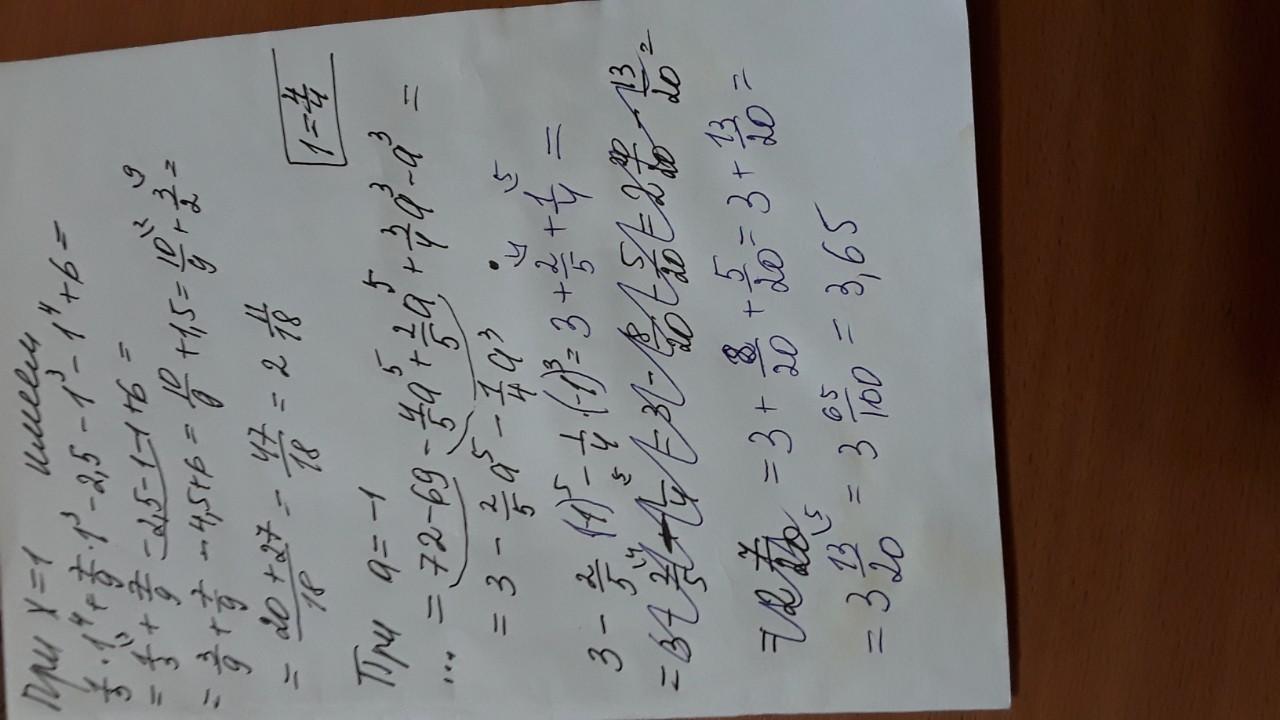 При x=1 имеем
1/3 · 1⁴ + 7/9 · 1³ - 2,5 - 1³ - 1⁴ + 6 =
= 1/3 + 7/9 - 2,5 - 1 - 1 + 6 =
= 3/9 + 7/9 - 4,5 + 6 = 10/9 + 1,5 = 10/9 + 3/2 =
= (20 + 27)/18 = 47/18 = 2 11/18
1 = 4/4
При a = -1
... = 72 - 69 - 4/5 a⁵ + 2/5 a⁵ + 3/4 a³ - a³ =
= 3 - 2/5 a⁵ - 1/4 a³
3 - 2/5 (-1)⁵ - 1/4 · (-1)³ = 3 + 2/5 + 1/4 =
= 3 + 8/20 + 5/20 = 3 + 13/20 =
= 3 13/20 = 3 65/100 = 3,65